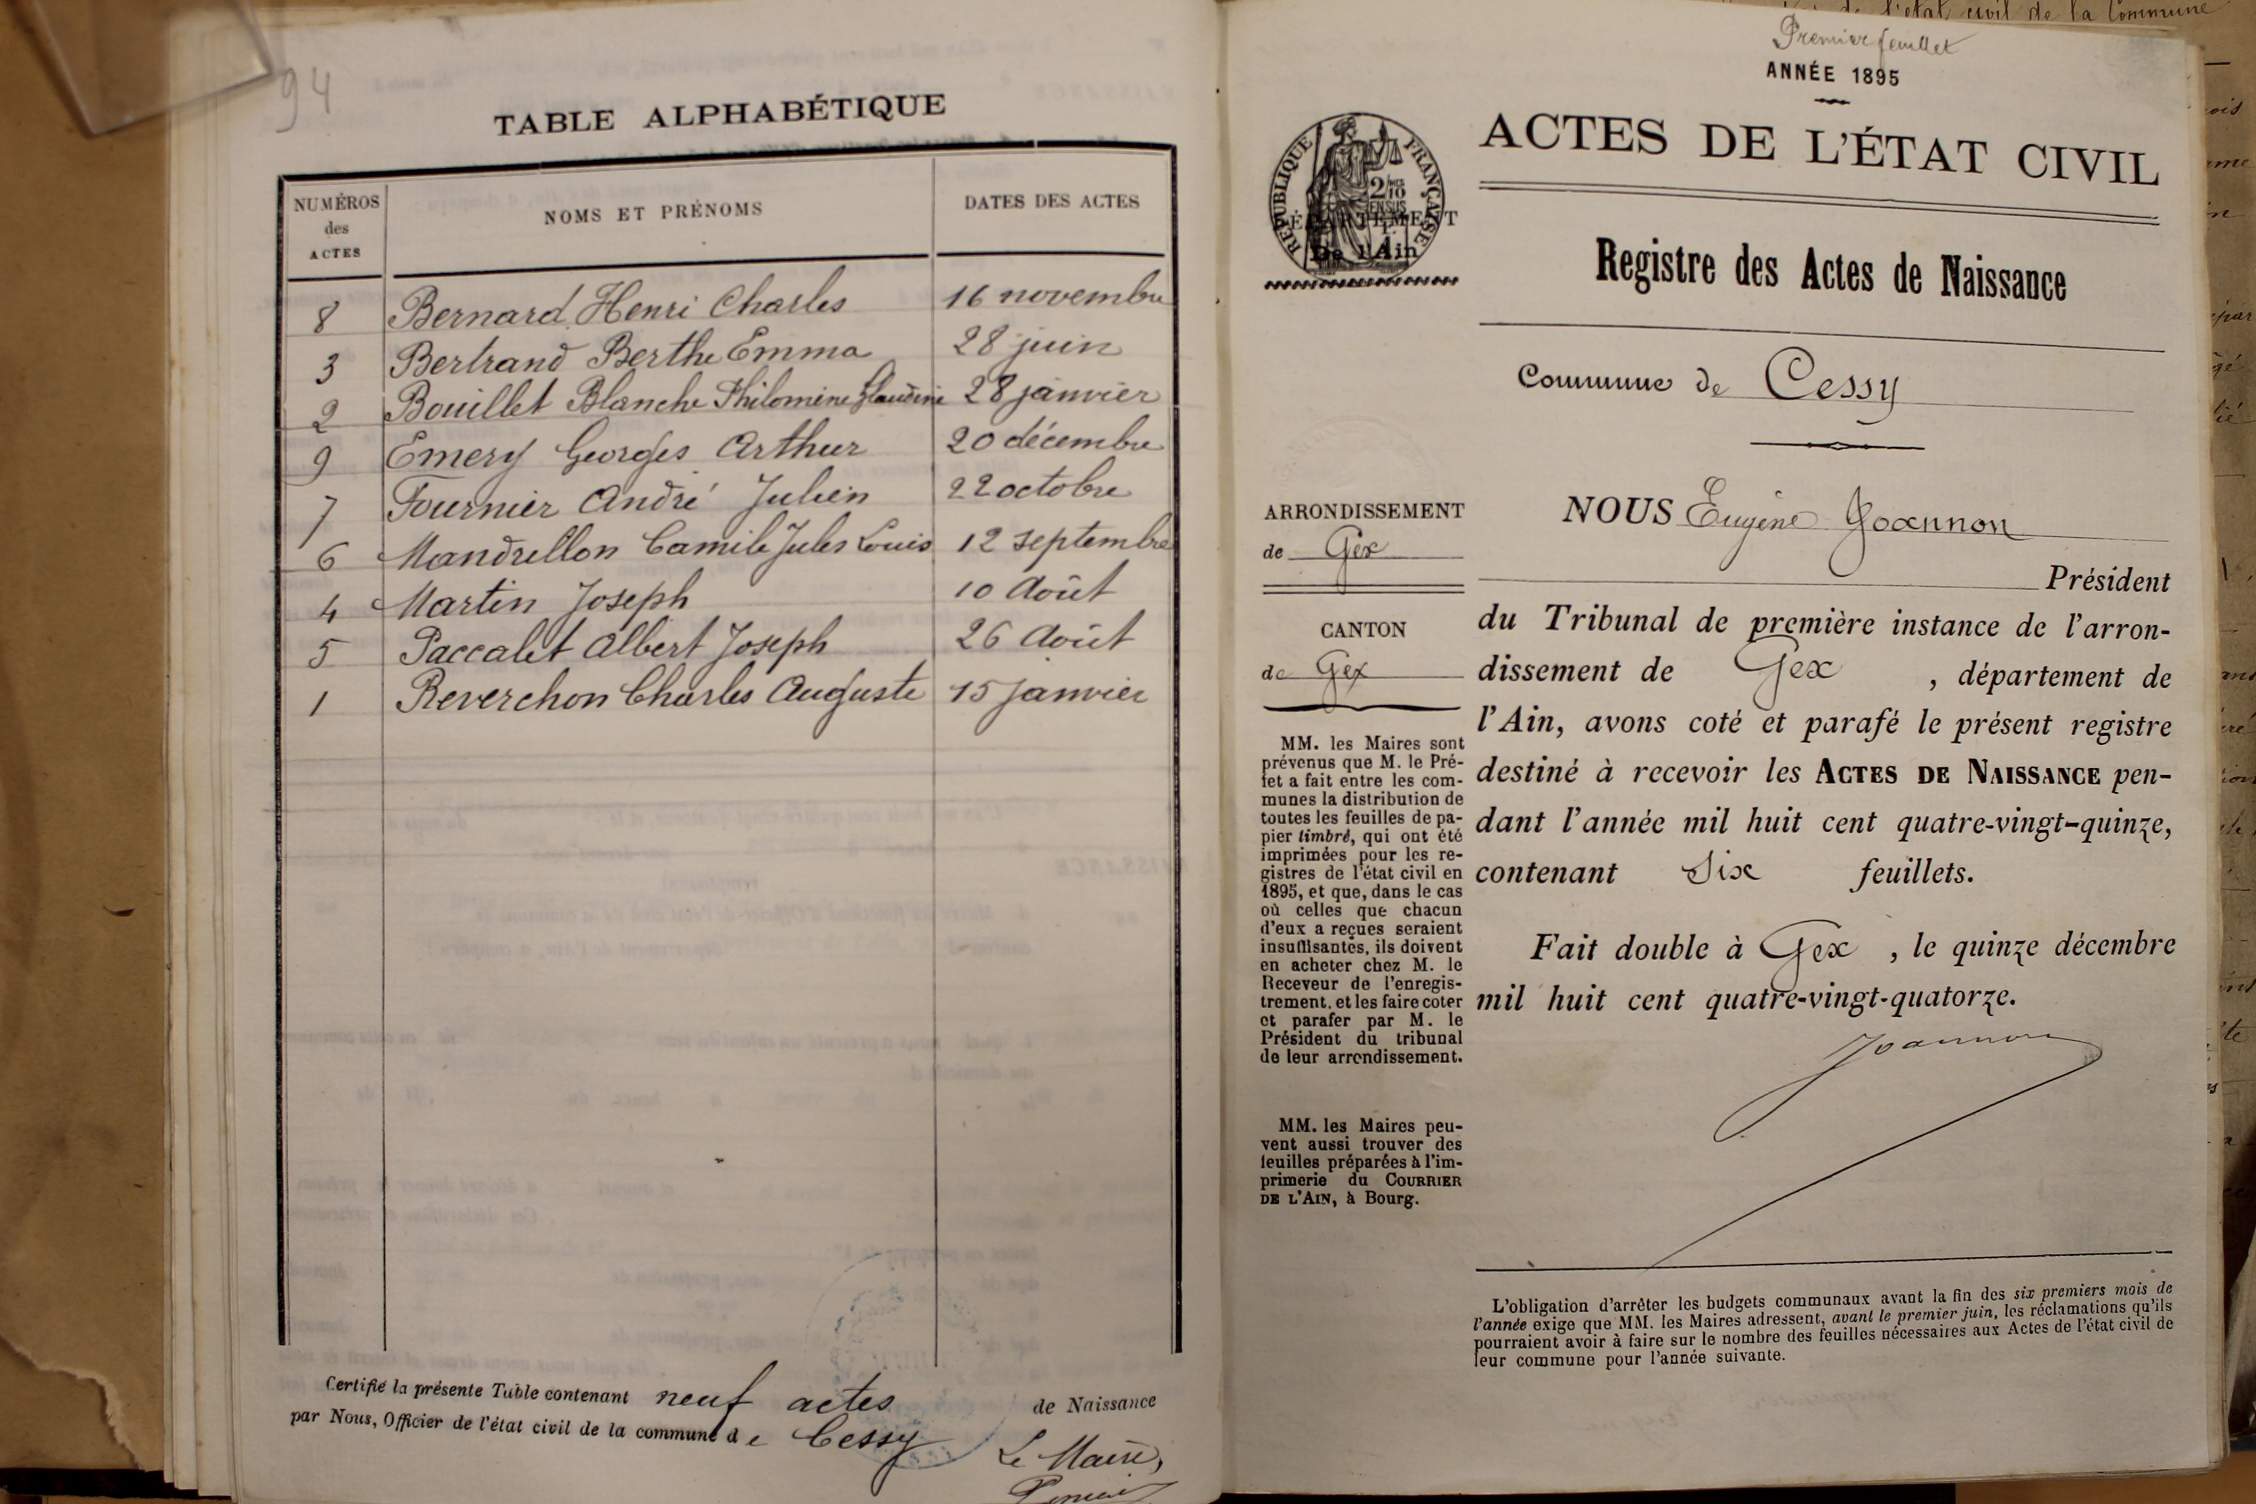 94
TABLE ALPHABÉTIQUE
NUMÉROS des ACTES
NOMS ET PRÉNOMS
DATES DES ACTES
8 Bernard Henri Charles 16 novembre
3 Bertrand Berthe Emma 28 juin
2 Bouillet Blanche Philomène Claudine 28 janvier
9 Emery Georges Arthur 20 décembre
7 Fournier André Julien 22 octobre
6 Mandrillon Camile Jules Louis 12 septembre
4 Martin Joseph 10 Août
5 Paccalet Albert Joseph 26 Août
1 Reverchon Charles Auguste 15 janvier
Certifié la présente Table contenant neuf actes de Naissance
par Nous, Officier de l'état civil de la commune de Cessy
Le Maire,
de l'état civil de la Commune
Premier feuillet
ANNÉE 1895
ACTES DE L'ÉTAT CIVIL
RÉPUBLIQUE FRANÇAISE
2/10 EN SUS
DÉPARTEMENT
De l'Ain
Registre des Actes de Naissance
Commune de Cessy
ARRONDISSEMENT
de Gex
CANTON
de Gex
MM. les Maires sont
prévenus que M. le Pré-
fet a fait entre les com-
munes la distribution de
toutes les feuilles de pa-
pier timbré, qui ont été
imprimées pour les re-
gistres de l'état civil en
1895, et que, dans le cas
où celles que chacun
d'eux a reçues seraient
insuffisantes, ils doivent
en acheter chez M. le
Receveur de l'enregis-
trement, et les faire coter
et parafer par M. le
Président du tribunal
de leur arrondissement.
MM. les Maires peu-
vent aussi trouver des
feuilles préparées à l'im-
primerie du COURRIER
DE L'AIN, à Bourg.
NOUS Eugène Joannon
Président
du Tribunal de première instance de l'arron-
dissement de Gex , département de
l'Ain, avons coté et parafé le présent registre
destiné à recevoir les ACTES DE NAISSANCE pen-
dant l'année mil huit cent quatre-vingt-quinze,
contenant six feuillets.
Fait double à Gex , le quinze décembre
mil huit cent quatre-vingt-quatorze.
Joannon
L'obligation d'arrêter les budgets communaux avant la fin des six premiers mois de
l'année exige que MM. les Maires adressent, avant le premier juin, les réclamations qu'ils
pourraient avoir à faire sur le nombre des feuilles nécessaires aux Actes de l'état civil de
leur commune pour l'année suivante.